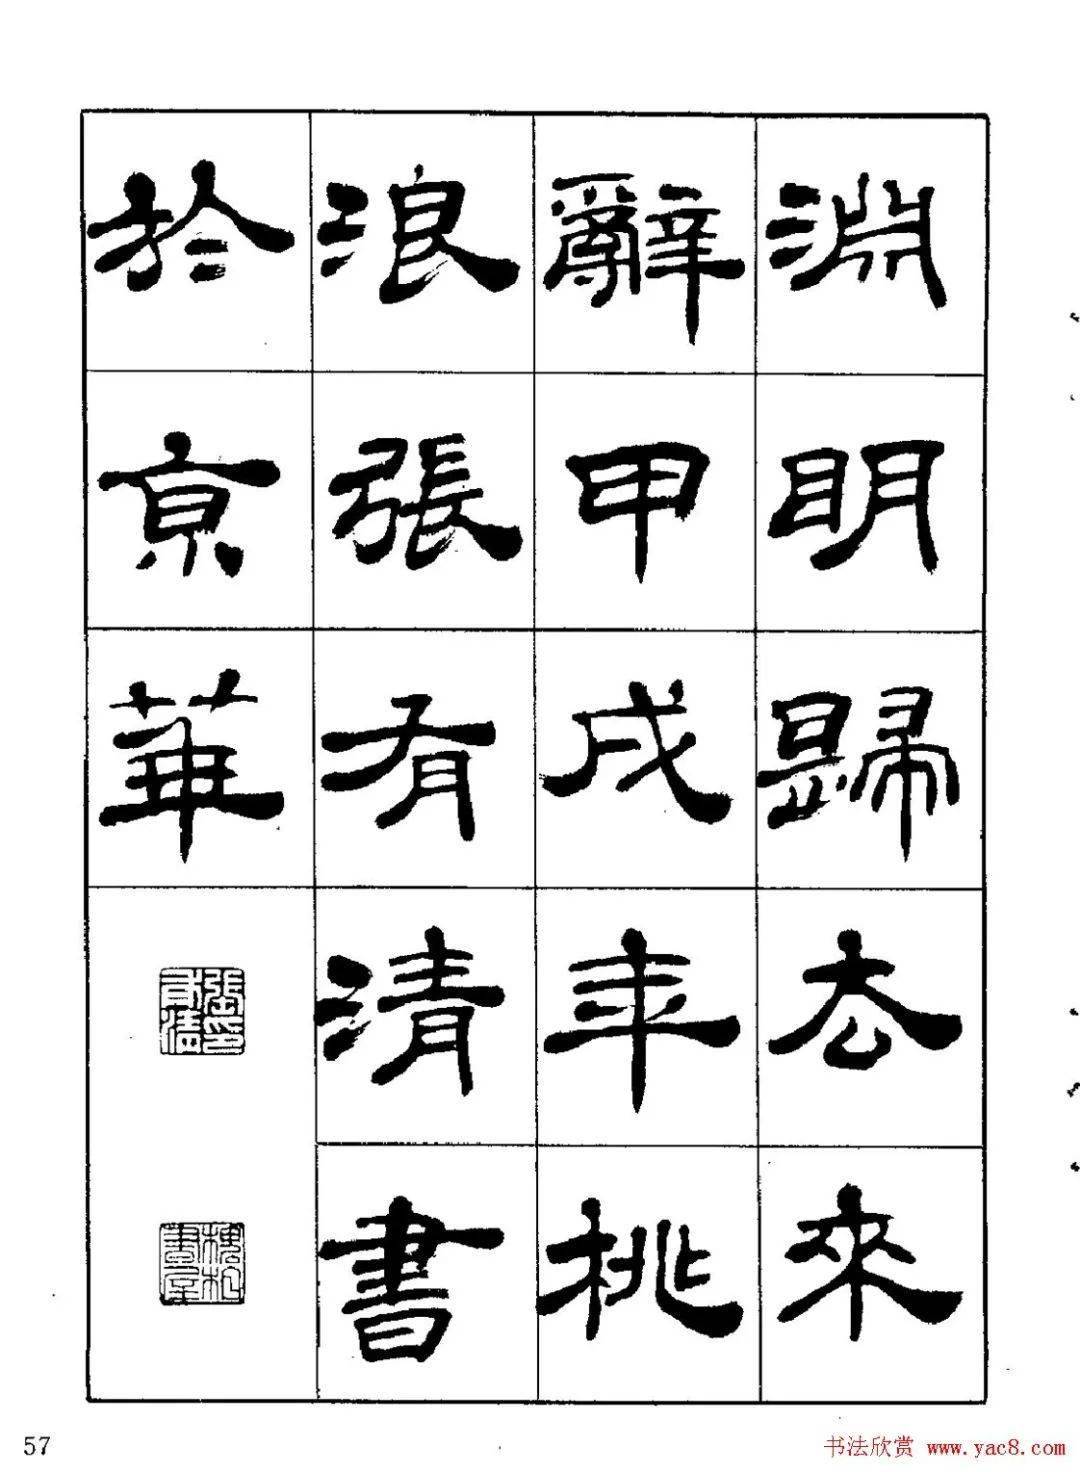 淵明歸去來
辭甲戌年桃
浪張有清書
於京華
張有清印
槐松書屋
57
书法欣赏 www.yac8.com